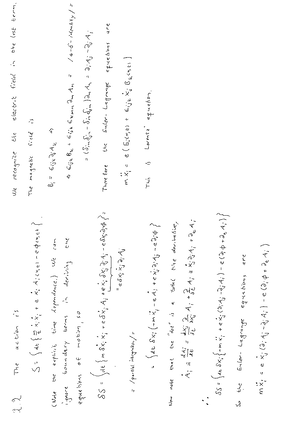 2.2 The action is
S = ∫dt { m/2 ẋᵢẋᵢ + e ẋᵢ Aᵢ(x,t) - eφ(x,t) }.
(Note the explicit time dependence.) We can
ignore boundary terms in deriving the
equations of motion, so
δS = ∫dt { m δẋᵢ ẋᵢ + e δẋᵢ Aᵢ + e ẋᵢ δxⱼ ∂ⱼAᵢ - e δxᵢ ∂ᵢφ } =
= /partial integrate/ =
= ∫dt δxᵢ { -m ẍᵢ - e Ȧᵢ + e ẋⱼ ∂ᵢAⱼ - e ∂ᵢφ }
Now note that the "dot" is a total time derivative,
∴
δS = ∫dt δxᵢ { -m ẍᵢ + e ẋⱼ (∂ᵢAⱼ - ∂ⱼAᵢ) - e (∂ᵢφ + ∂ₜAᵢ) }
So the Euler-Lagrange equations are
m ẍᵢ = e ẋⱼ (∂ᵢAⱼ - ∂ⱼAᵢ) - e (∂ᵢφ + ∂ₜAᵢ)
We recognize the electric field in the last term.
The magnetic field is
Bᵢ = εᵢⱼₖ ∂ⱼAₖ ⇒
⇒ εᵢⱼₖ Bₖ = εᵢⱼₖ εₖₘₙ ∂ₘAₙ = /ε-δ-identity/ =
= (δᵢₘδⱼₙ - δᵢₙδⱼₘ) ∂ₘAₙ = ∂ᵢAⱼ - ∂ⱼAᵢ
Therefore the Euler-Lagrange equations are
m ẍᵢ = e (Eᵢ(x,t) + εᵢⱼₖ ẋⱼ Bₖ(x,t))
This is Lorentz' equation.